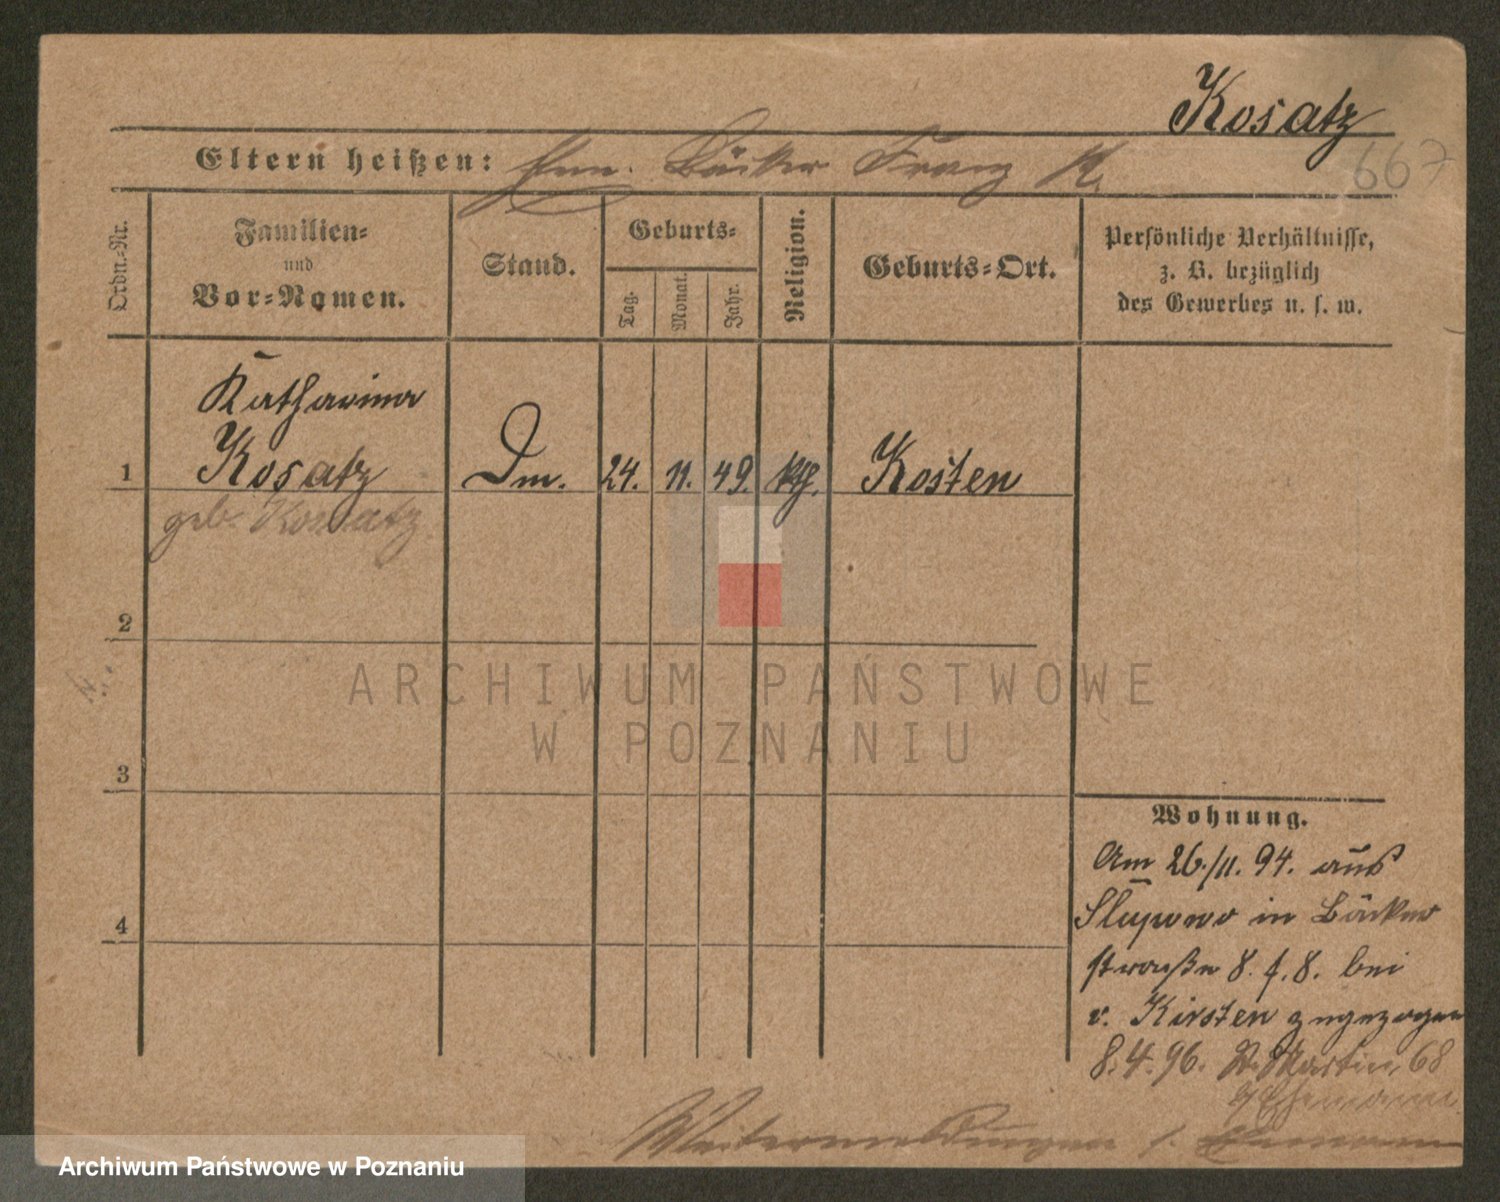 Kosatz
667
Eltern heißen: Bäcker Franz K.
Ordn.-Nr.
Familien-
und
Vor-Namen.
Stand.
Geburts-
Tag.
Monat.
Jahr.
Religion.
Geburts-Ort.
Persönliche Verhältnisse,
z. B. bezüglich
des Gewerbes u. s. w.
Katharina
1 Kosatz Dm. 24. 11. 49. kth. Kosten
geb. Kosmatz
2
3
4
Wohnung.
Am 26./11. 94. aus
Slupowo in Bäcker
straße 8. f. 8. bei
v. Kirsten zugezogen
8.4.96. St. Martin 68
Ehemann
Weitermeldungen s. Ehemann
ARCHIWUM PAŃSTWOWE
W POZNANIU
Archiwum Państwowe w Poznaniu